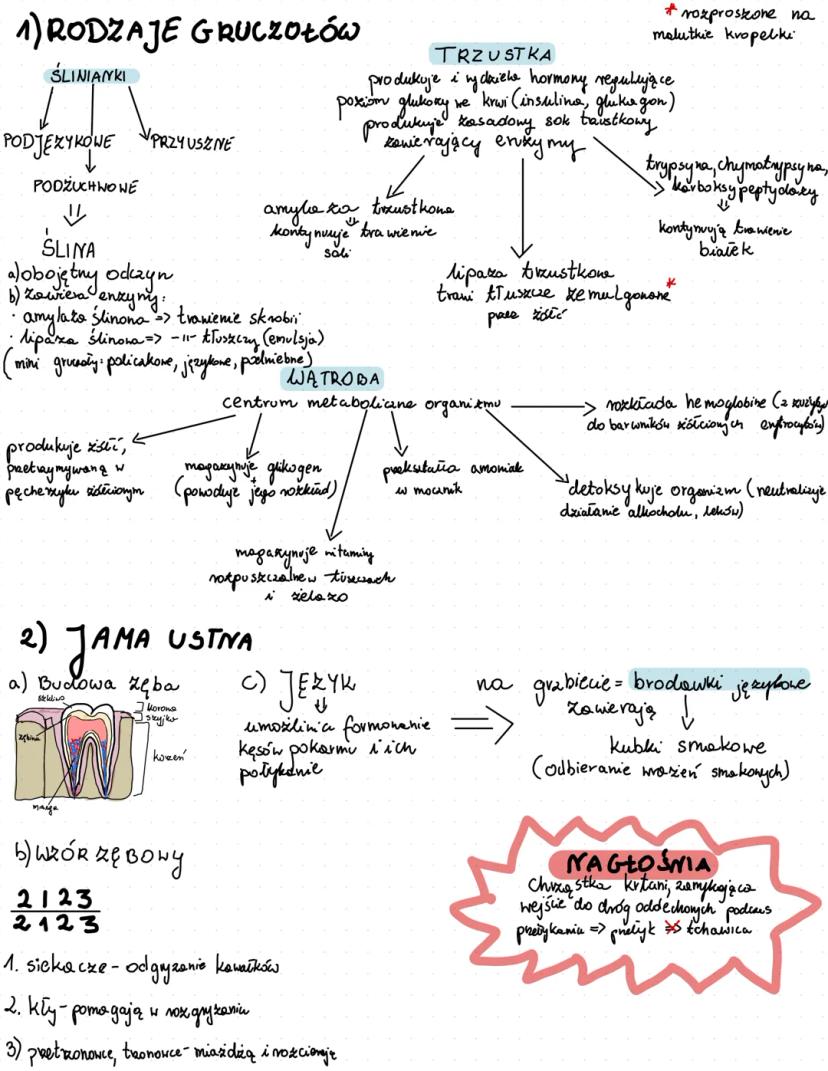 1) RODZAJE GRUCZOŁÓW
* rozproszone na
malutkie kropelki
ŚLINIANKI
PODJĘZYKOWE
PRZYUSZNE
PODŻUCHWOWE
ŚLINA
a) obojętny odczyn
b) zawiera enzymy:
· amylaza ślinowa => trawienie skrobii
· lipaza ślinowa => -||- tłuszczy (emulsja)
(mini gruczoły: policzkowe, językowe, podniebne)
TRZUSTKA
produkuje i wydziela hormony regulujące
poziom glukozy we krwi (insulina, glukagon)
produkuje zasadowy sok trzustkowy
zawierający enzymy
amylaza trzustkowa
kontynuuje trawienie
lipaza trzustkowa
trawi tłuszcze zemulgowane *
przez żółć
trypsyna, chymotrypsyna,
karboksypeptydazy
kontynuują trawienie
białek
WĄTROBA
centrum metaboliczne organizmu
rozkłada hemoglobinę (z zużytych
do barwników żółciowych erytrocytów)
produkuje żółć,
przetrzymywaną w
pęcherzyku żółciowym
magazynuje glikogen
+
(powoduje jego rozkład)
przekształca amoniak
w mocznik
detoksykuje organizm (neutralizuje
działanie alkocholu, leków)
magazynuje witaminy
rozpuszczalne w tłuszczach
i żelazo
2) JAMA USTNA
a) Budowa zęba
szkliwo
korona
szyjka
zębina
korzeń
miazga
c) JĘZYK
umożliwia formowanie
kęsów pokarmu i ich
połykanie
na grzbiecie = brodawki językowe
zawierają
kubki smakowe
(odbieranie wrażeń smakowych)
b) WZÓR ZĘBOWY
2 1 2 3
2 1 2 3
1. siekacze - odgryzanie kawałków
2. kły - pomagają w rozgryzaniu
3) przedtrzonowce, trzonowce - miażdżą i rozcierają
NAGŁOŚNIA
Chrząstka krtani, zamykająca
wejście do dróg oddechowych podczas
przełykania => przełyk => tchawica